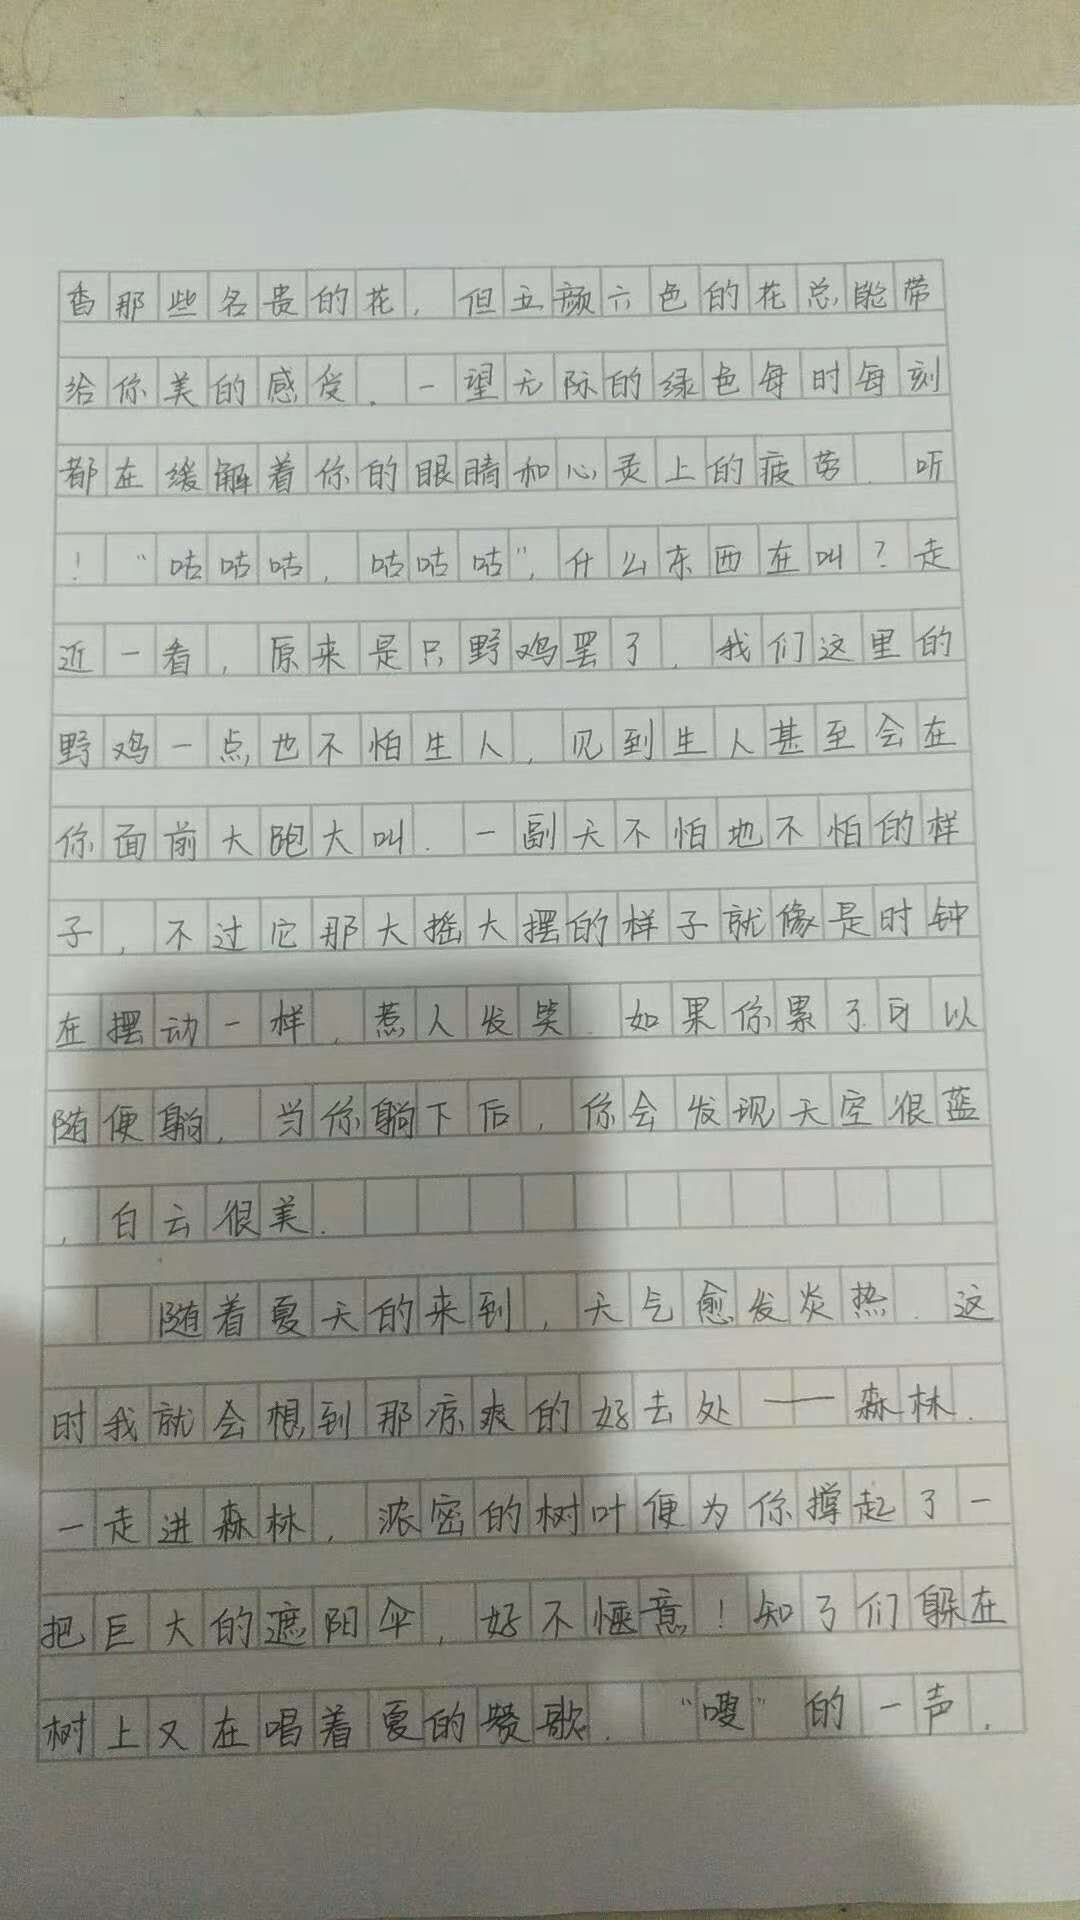 香那些名贵的花，但五颜六色的花总能带
给你美的感受．一望无际的绿色每时每刻
都在缓解着你的眼睛和心灵上的疲劳．听
！“咕咕咕，咕咕咕”，什么东西在叫？走
近一看，原来是只野鸡罢了，我们这里的
野鸡一点也不怕生人，见到生人甚至会在
你面前大跑大叫．一副天不怕地不怕的样
子，不过它那大摇大摆的样子就像是时钟
在摆动一样，惹人发笑．如果你累了可以
随便躺，当你躺下后，你会发现天空很蓝
，白云很美．
随着夏天的来到，天气愈发炎热．这
时我就会想到那凉爽的好去处——森林．
一走进森林，浓密的树叶便为你撑起了一
把巨大的遮阳伞，好不惬意！知了们躲在
树上又在唱着夏的赞歌．“嗖”的一声，